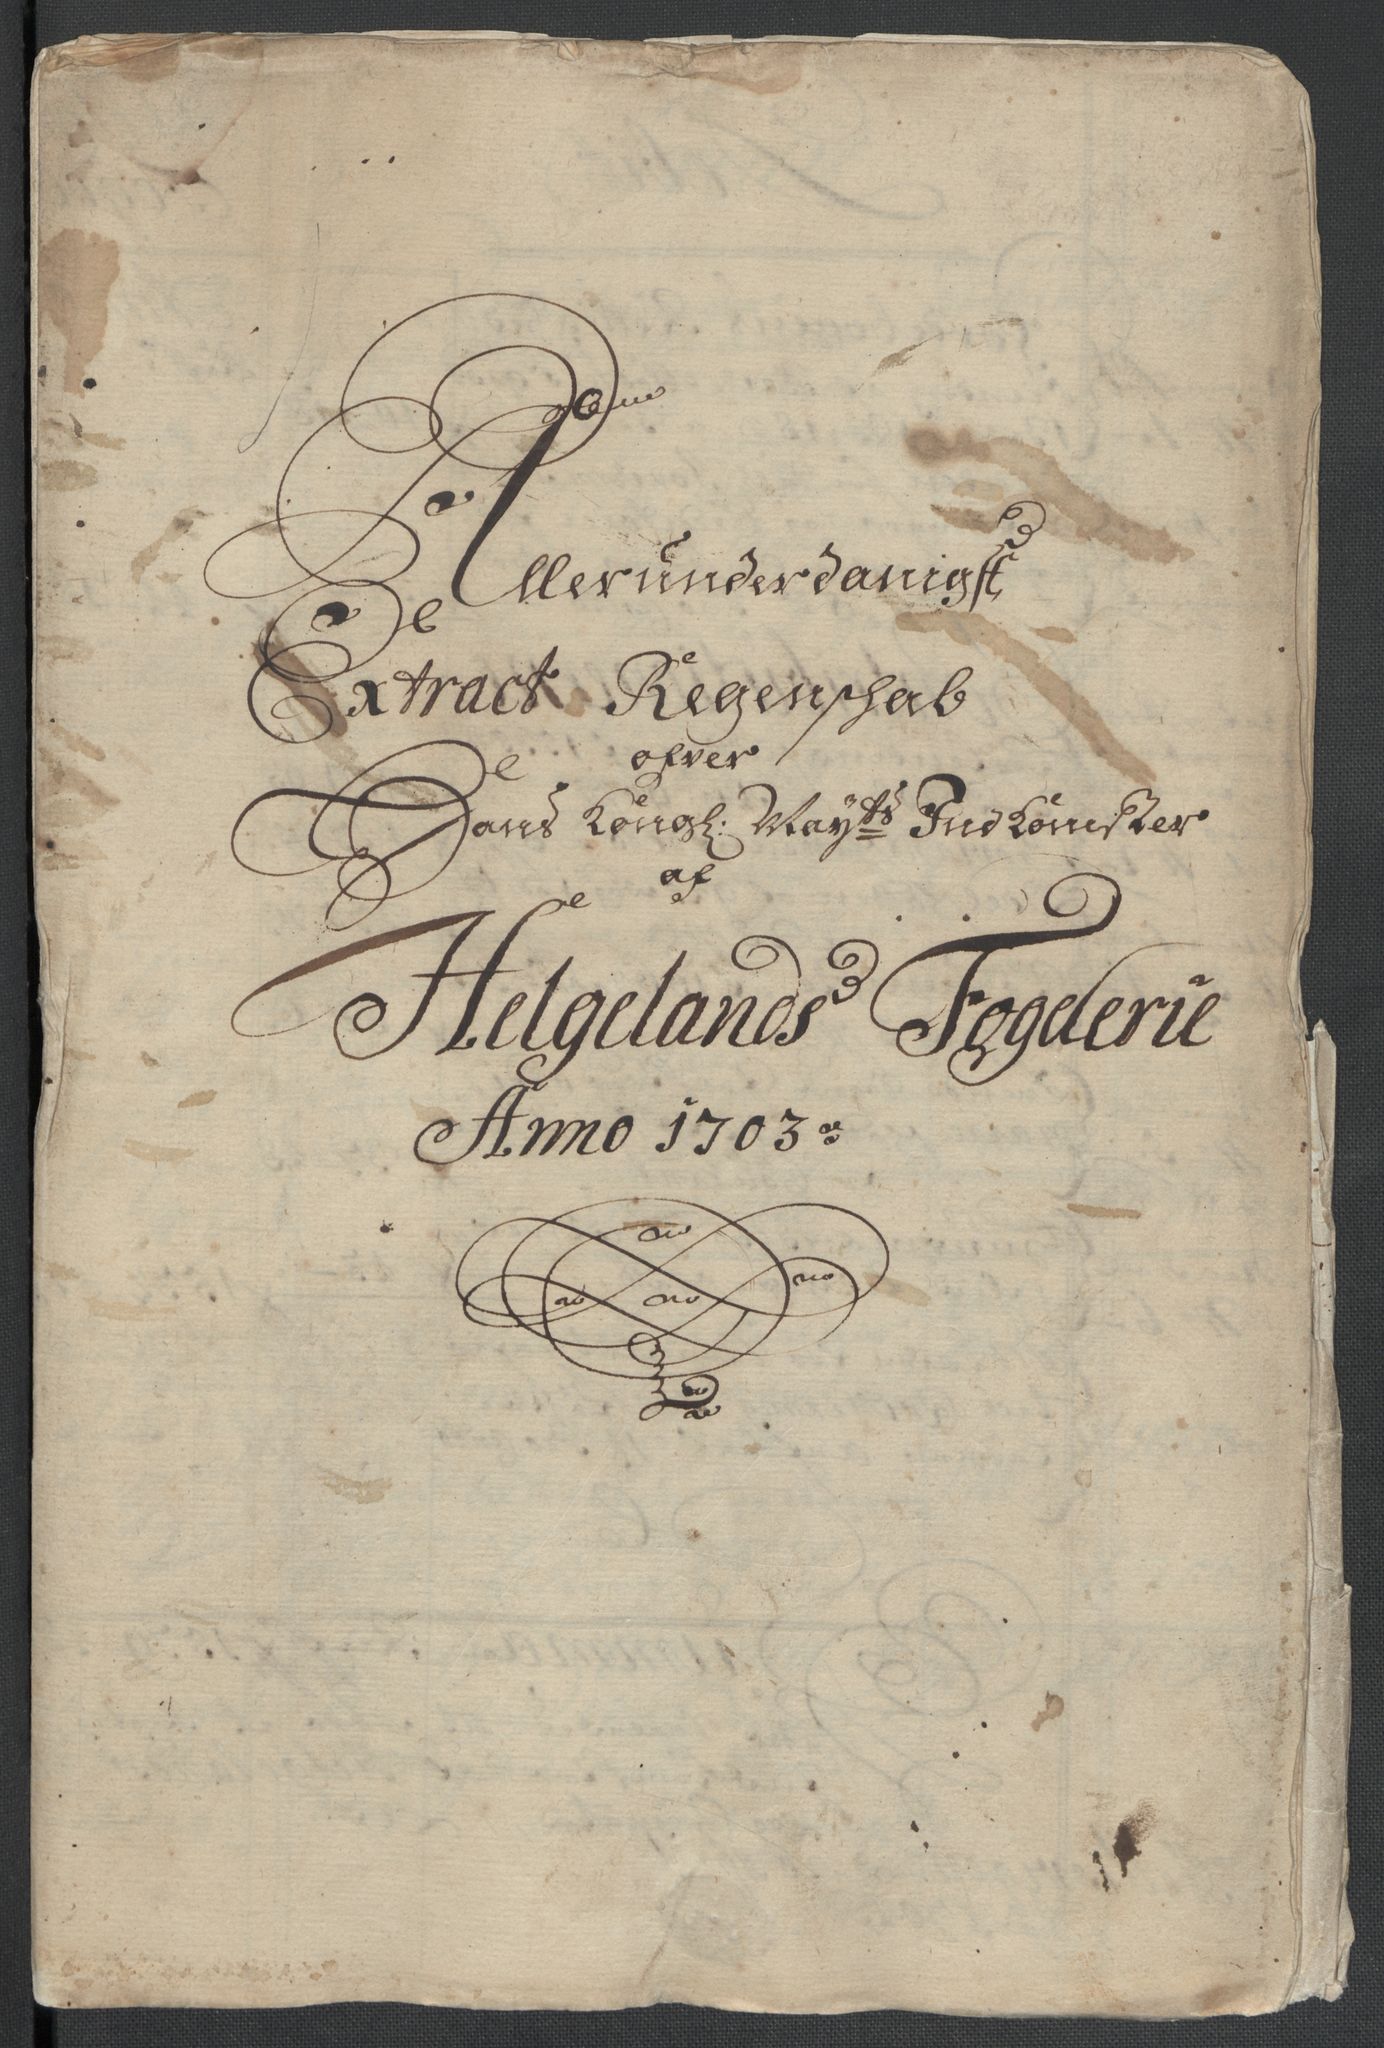 Allerunderdanigst
Extract Regenschab
ofver
Hans Kongl: Mayts Indkomster
af
Helgelands Fogderie
Anno 1703